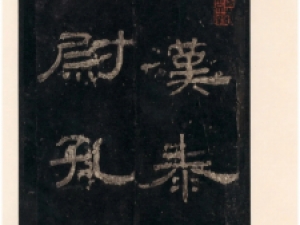 漢泰
尉孔